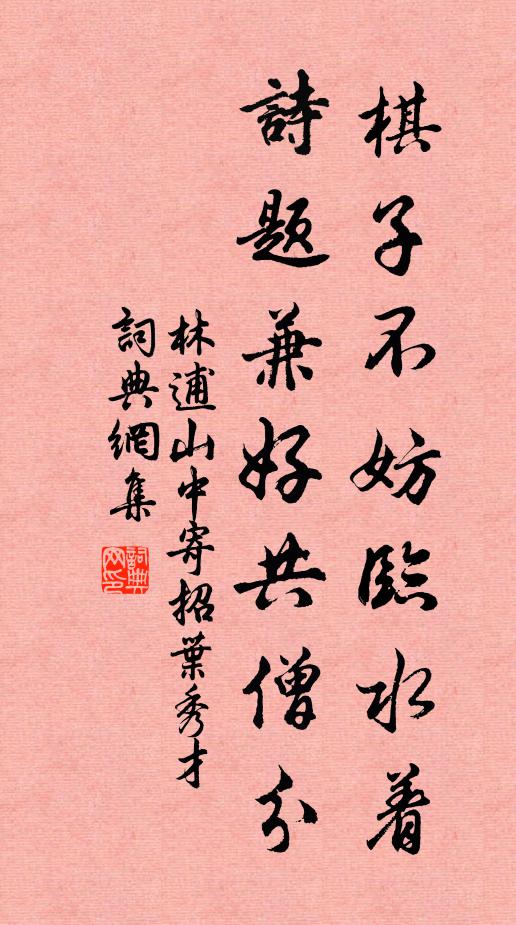 棋子不妨臨水着
詩题兼好共僧分
林逋山中寄招葉秀才
詞典網集
詞典网印